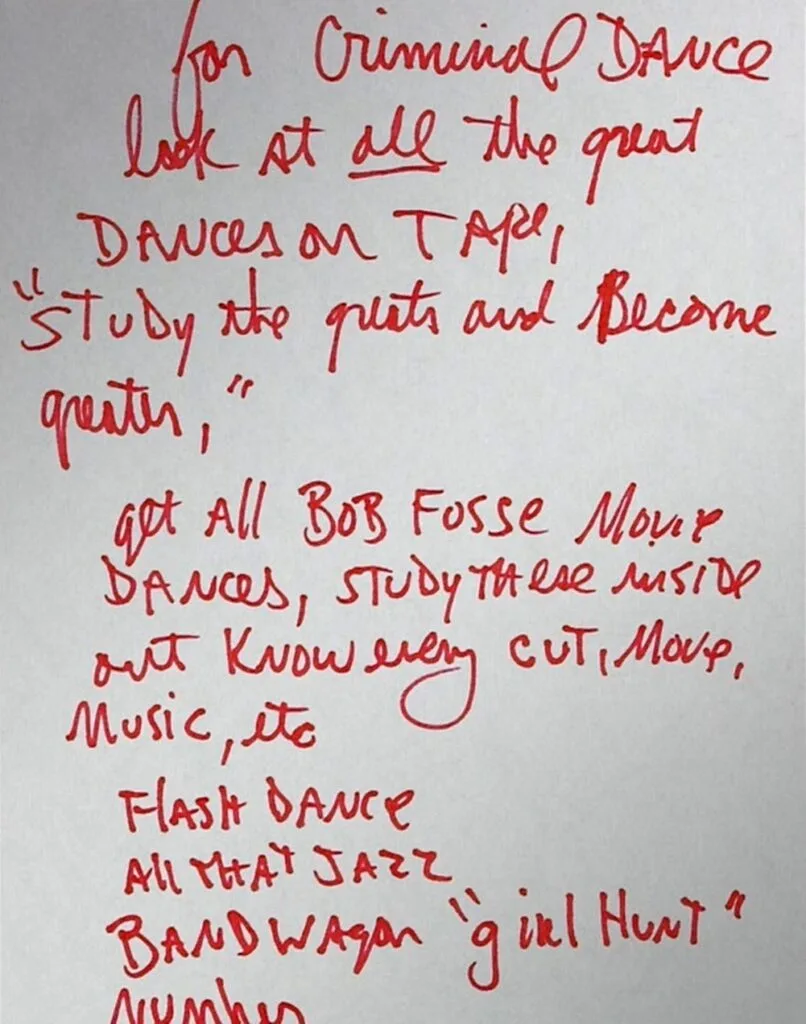 for Criminal DANCE
look at all the great
DANCES on TAPE,
"STUDY the greats and Become
greater,"
get All BOB FOSSE Movie
DANCES, STUDY THESE inside
out KNOW every CUT, Move,
Music, etc
FLASH DANCE
All THAT JAZZ
BANDWAgon "girl HUNT"
Number